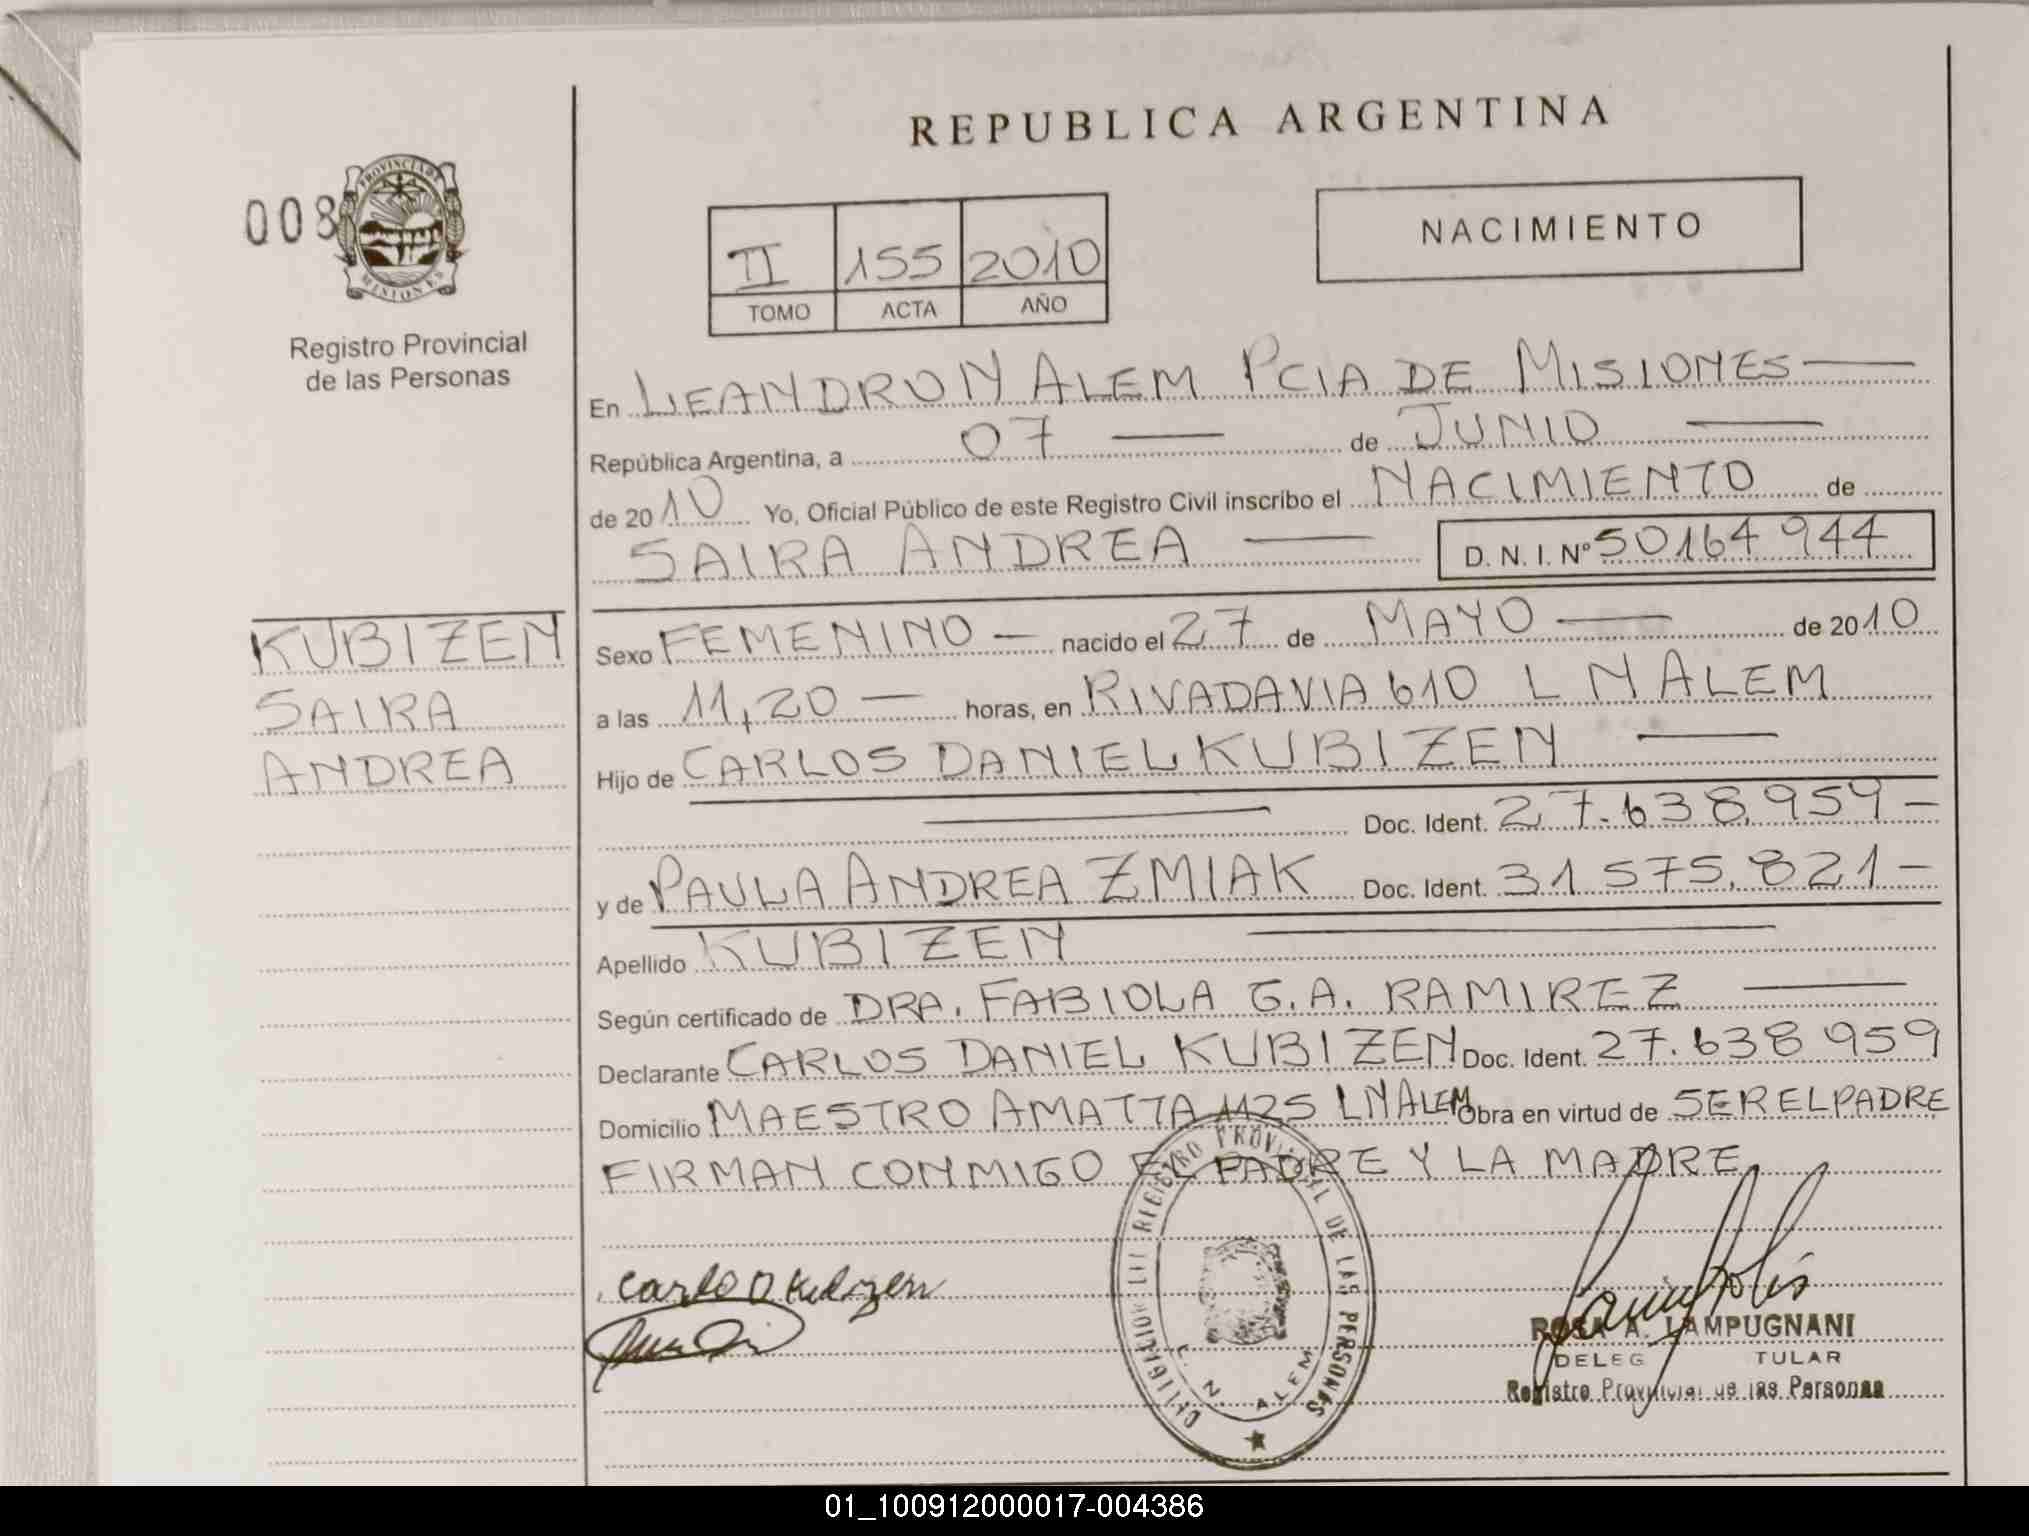 REPUBLICA ARGENTINA
008
PROVINCIA DE
MISIONES
Registro Provincial
de las Personas
II 155 2010
TOMO ACTA AÑO
NACIMIENTO
En LEANDRO N ALEM PCIA DE MISIONES
República Argentina, a 07 de JUNIO
de 2010 Yo, Oficial Público de este Registro Civil inscribo el NACIMIENTO de
SAIRA ANDREA D. N. I. Nº 50164944
KUBIZEN
SAIRA
ANDREA
Sexo FEMENINO nacido el 27 de MAYO de 2010
a las 11,20 horas, en RIVADAVIA 610 L N ALEM
Hijo de CARLOS DANIEL KUBIZEN
Doc. Ident. 27.638.959
y de PAULA ANDREA ZMIAK Doc. Ident. 31 575.821
Apellido KUBIZEN
Según certificado de DRA. FABIOLA G.A. RAMIREZ
Declarante CARLOS DANIEL KUBIZEN Doc. Ident. 27.638 959
Domicilio MAESTRO AMATTA 1125 LNALEM Obra en virtud de SER EL PADRE
FIRMAN CONMIGO EL PADRE Y LA MADRE
REGISTRO PROVINCIAL DE LAS PERSONAS
L. N. ALEM
Carlos D Kubizen
ROSA A. LAMPUGNANI
DELEG TULAR
Registro Provincial de las Personas
01_100912000017-004386